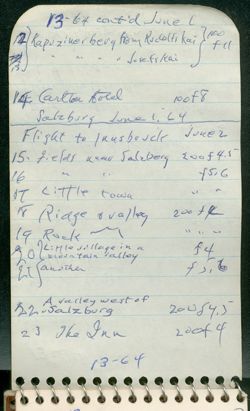 13-64 cont'd June 1
12 Kapuzinerberg from Rudolfskai 100
13 " " " Josefskai f11
14 Carlton Hotel 100 f8
Salzburg June 1, 64
Flight to Innsbruck June 2
15 Fields near Salzberg 200 f 4.5
16 " " f5.6
17 Little town " "
18 Ridge & valley 200 f4
19 Rock " "
20 Little village in a
mountain valley f4
21 another f5,6
22 A valley west of
Salzburg 200 f4,5
23 The Inn 200 f4
13-64